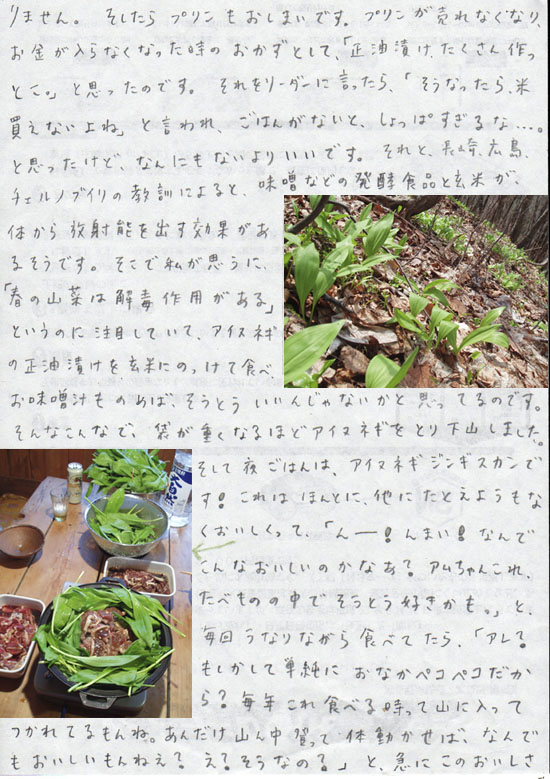 りません。そしたらプリンもおしまいです。プリンが売れなくなり、
お金が入らなくなった時のおかずとして、「正油漬け、たくさん作っ
とこ。」と思ったのです。それをリーダーに言ったら、「そうなったら、米
買えないよね」と言われ、ごはんがないと、しょっぱすぎるな…。
と思ったけど、なんにもないよりいいです。それと、長崎、広島、
チェルノブイリの教訓によると、味噌などの発酵食品と玄米が、
体から放射能を出す効果があ
るそうです。そこで私が思うに、
「春の山菜は解毒作用がある」
というのに注目していて、アイヌネギ
の正油漬けを玄米にのっけて食べ、
お味噌汁ものめば、そうとういいんじゃないかと思ってるのです。
そんなこんなで、袋が重くなるほどアイヌネギをとり下山しました。
そして夜ごはんは、アイヌネギジンギスカンで
す！これはほんとに、他にたとえようもな
くおいしくって、「んー！んまい！なんで
こんなおいしいのかなあ？アムちゃんこれ、
たべものの中でそうとう好きかも。」と、
毎回うなりながら食べてたら、「アレ？
もしかして単純におなかペコペコだか
ら？毎年これ食べる時って山に入って
つかれてるもんね。あんだけ山ん中登って体動かせば、なんで
もおいしいもんねえ？え？そうなの？」と、急にこのおいしさ